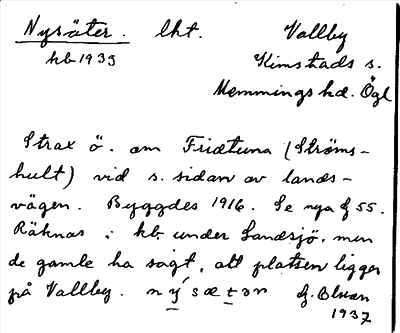 Nysäter. lht. Vallby
kb 1933 Kimstads s.
Memmings hd. Ögl
Strax ö. om Fridtuna (Ströms-
hult) vid s. sidan av lands-
vägen. Byggdes 1916. Se nya J 55.
Räknas i kb. under Landsjö, men
de gamle ha sagt, att platsen ligger
på Vallby. nýsætər
1937